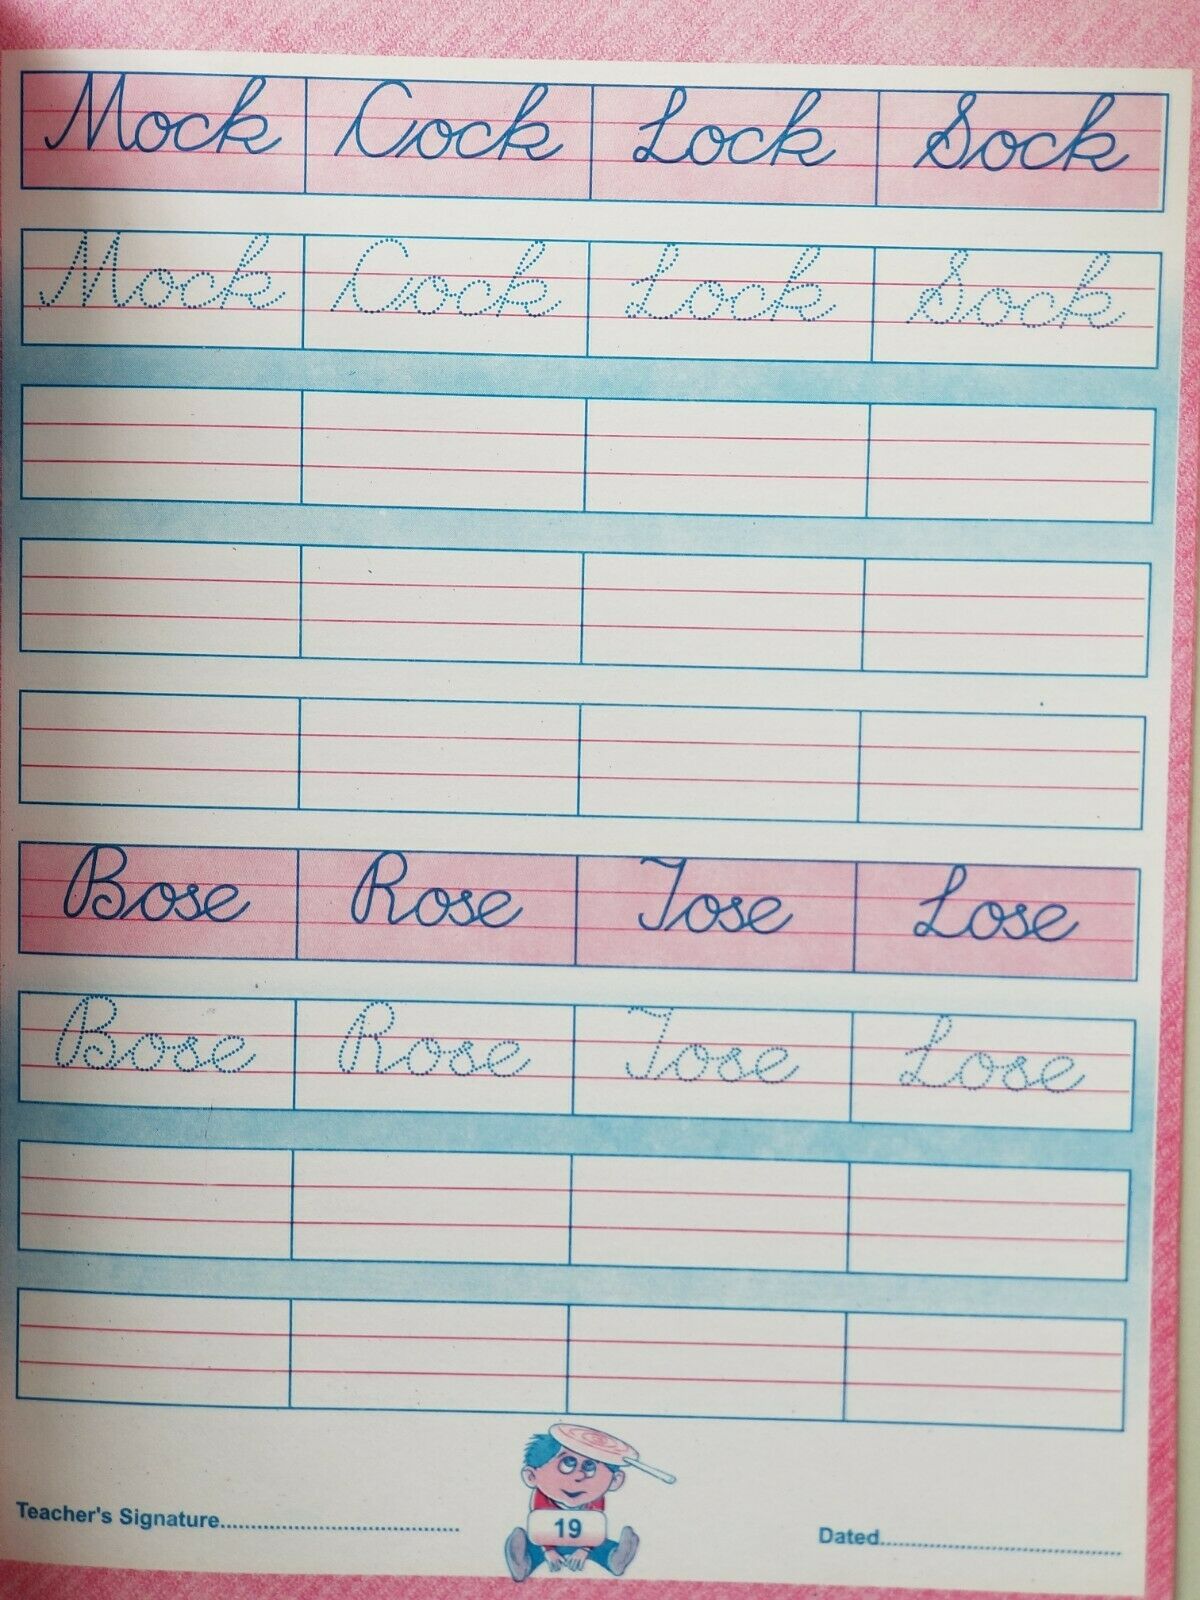 Mock Cock Lock Sock
Mock Cock Lock Sock
Bose Rose Tose Lose
Bose Rose Tose Lose
Teacher's Signature........................................
19
Dated........................................